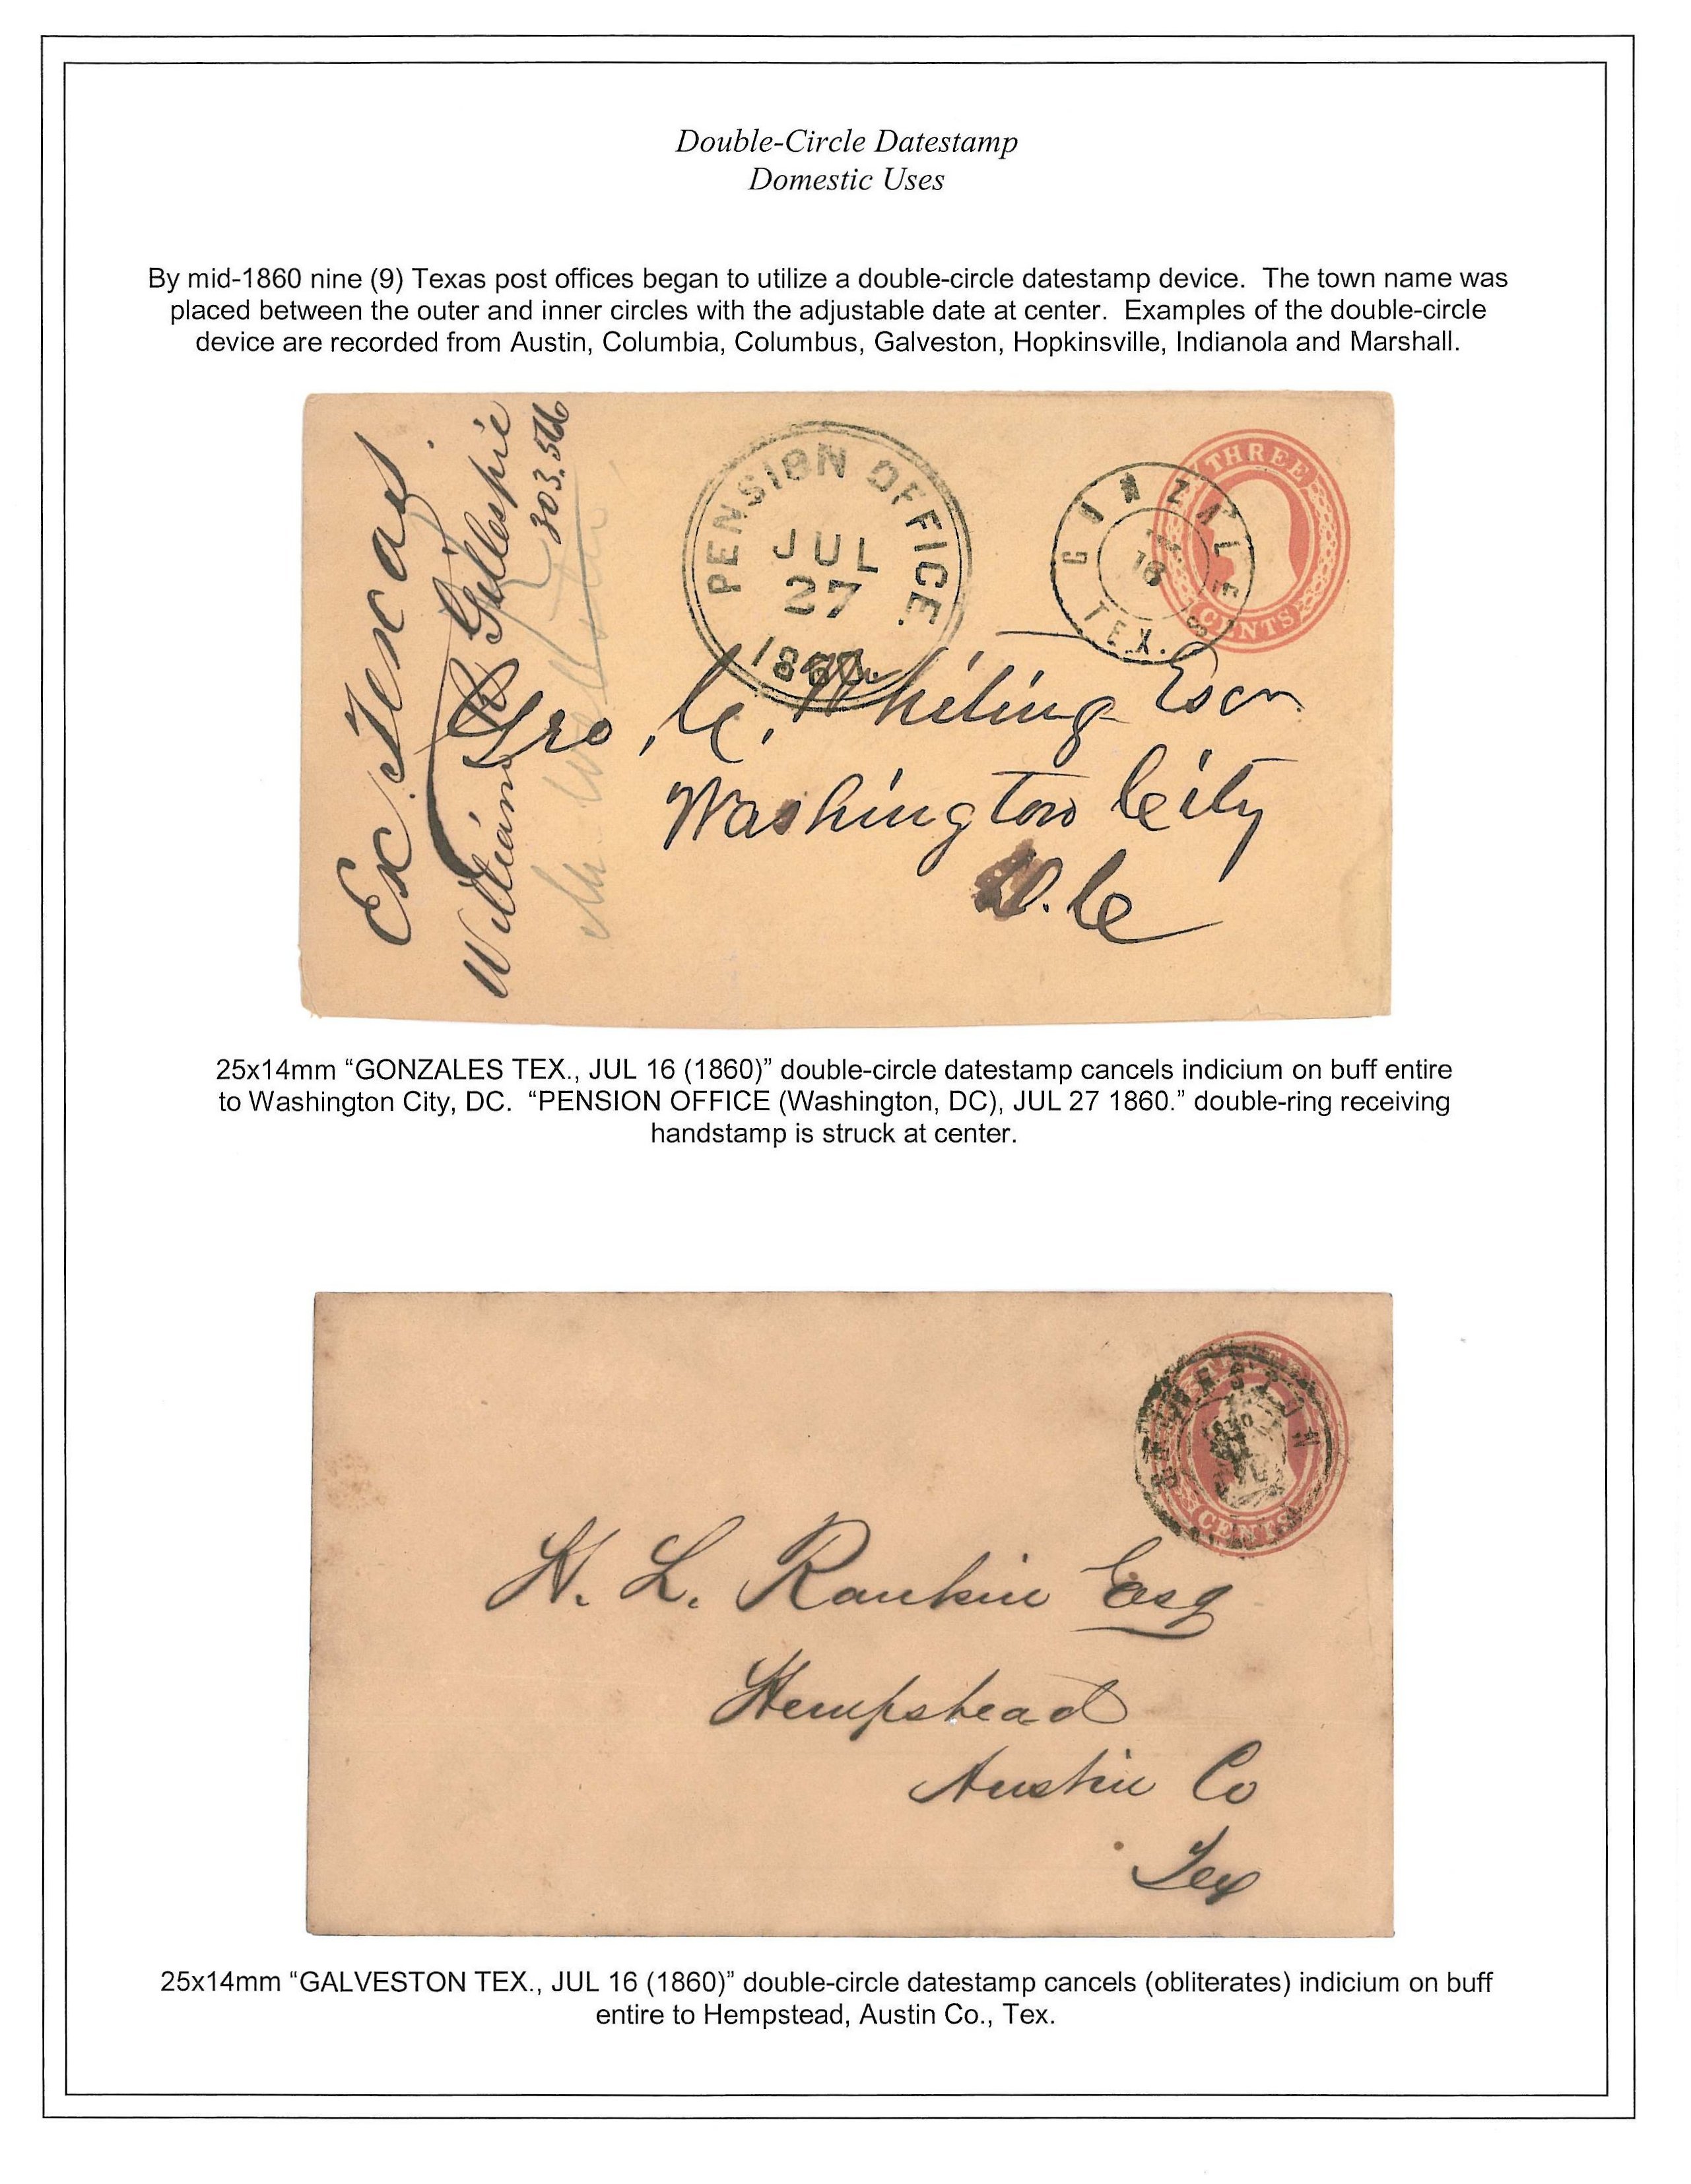 Double-Circle Datestamp
Domestic Uses
By mid-1860 nine (9) Texas post offices began to utilize a double-circle datestamp device. The town name was
placed between the outer and inner circles with the adjustable date at center. Examples of the double-circle
device are recorded from Austin, Columbia, Columbus, Galveston, Hopkinsville, Indianola and Marshall.
Ex. Texas.
William R Gillespie
303.566
PENSION OFFICE.
JUL
27
1860.
TEX.
16
THREE
CENTS
Geo. C. Whiting Esqr.
Washington City
D.C
25x14mm “GONZALES TEX., JUL 16 (1860)” double-circle datestamp cancels indicium on buff entire
to Washington City, DC. “PENSION OFFICE (Washington, DC), JUL 27 1860.” double-ring receiving
handstamp is struck at center.
CENTS
H. L. Rankin Esq
Hempstead
Austin Co
Tex
25x14mm “GALVESTON TEX., JUL 16 (1860)” double-circle datestamp cancels (obliterates) indicium on buff
entire to Hempstead, Austin Co., Tex.